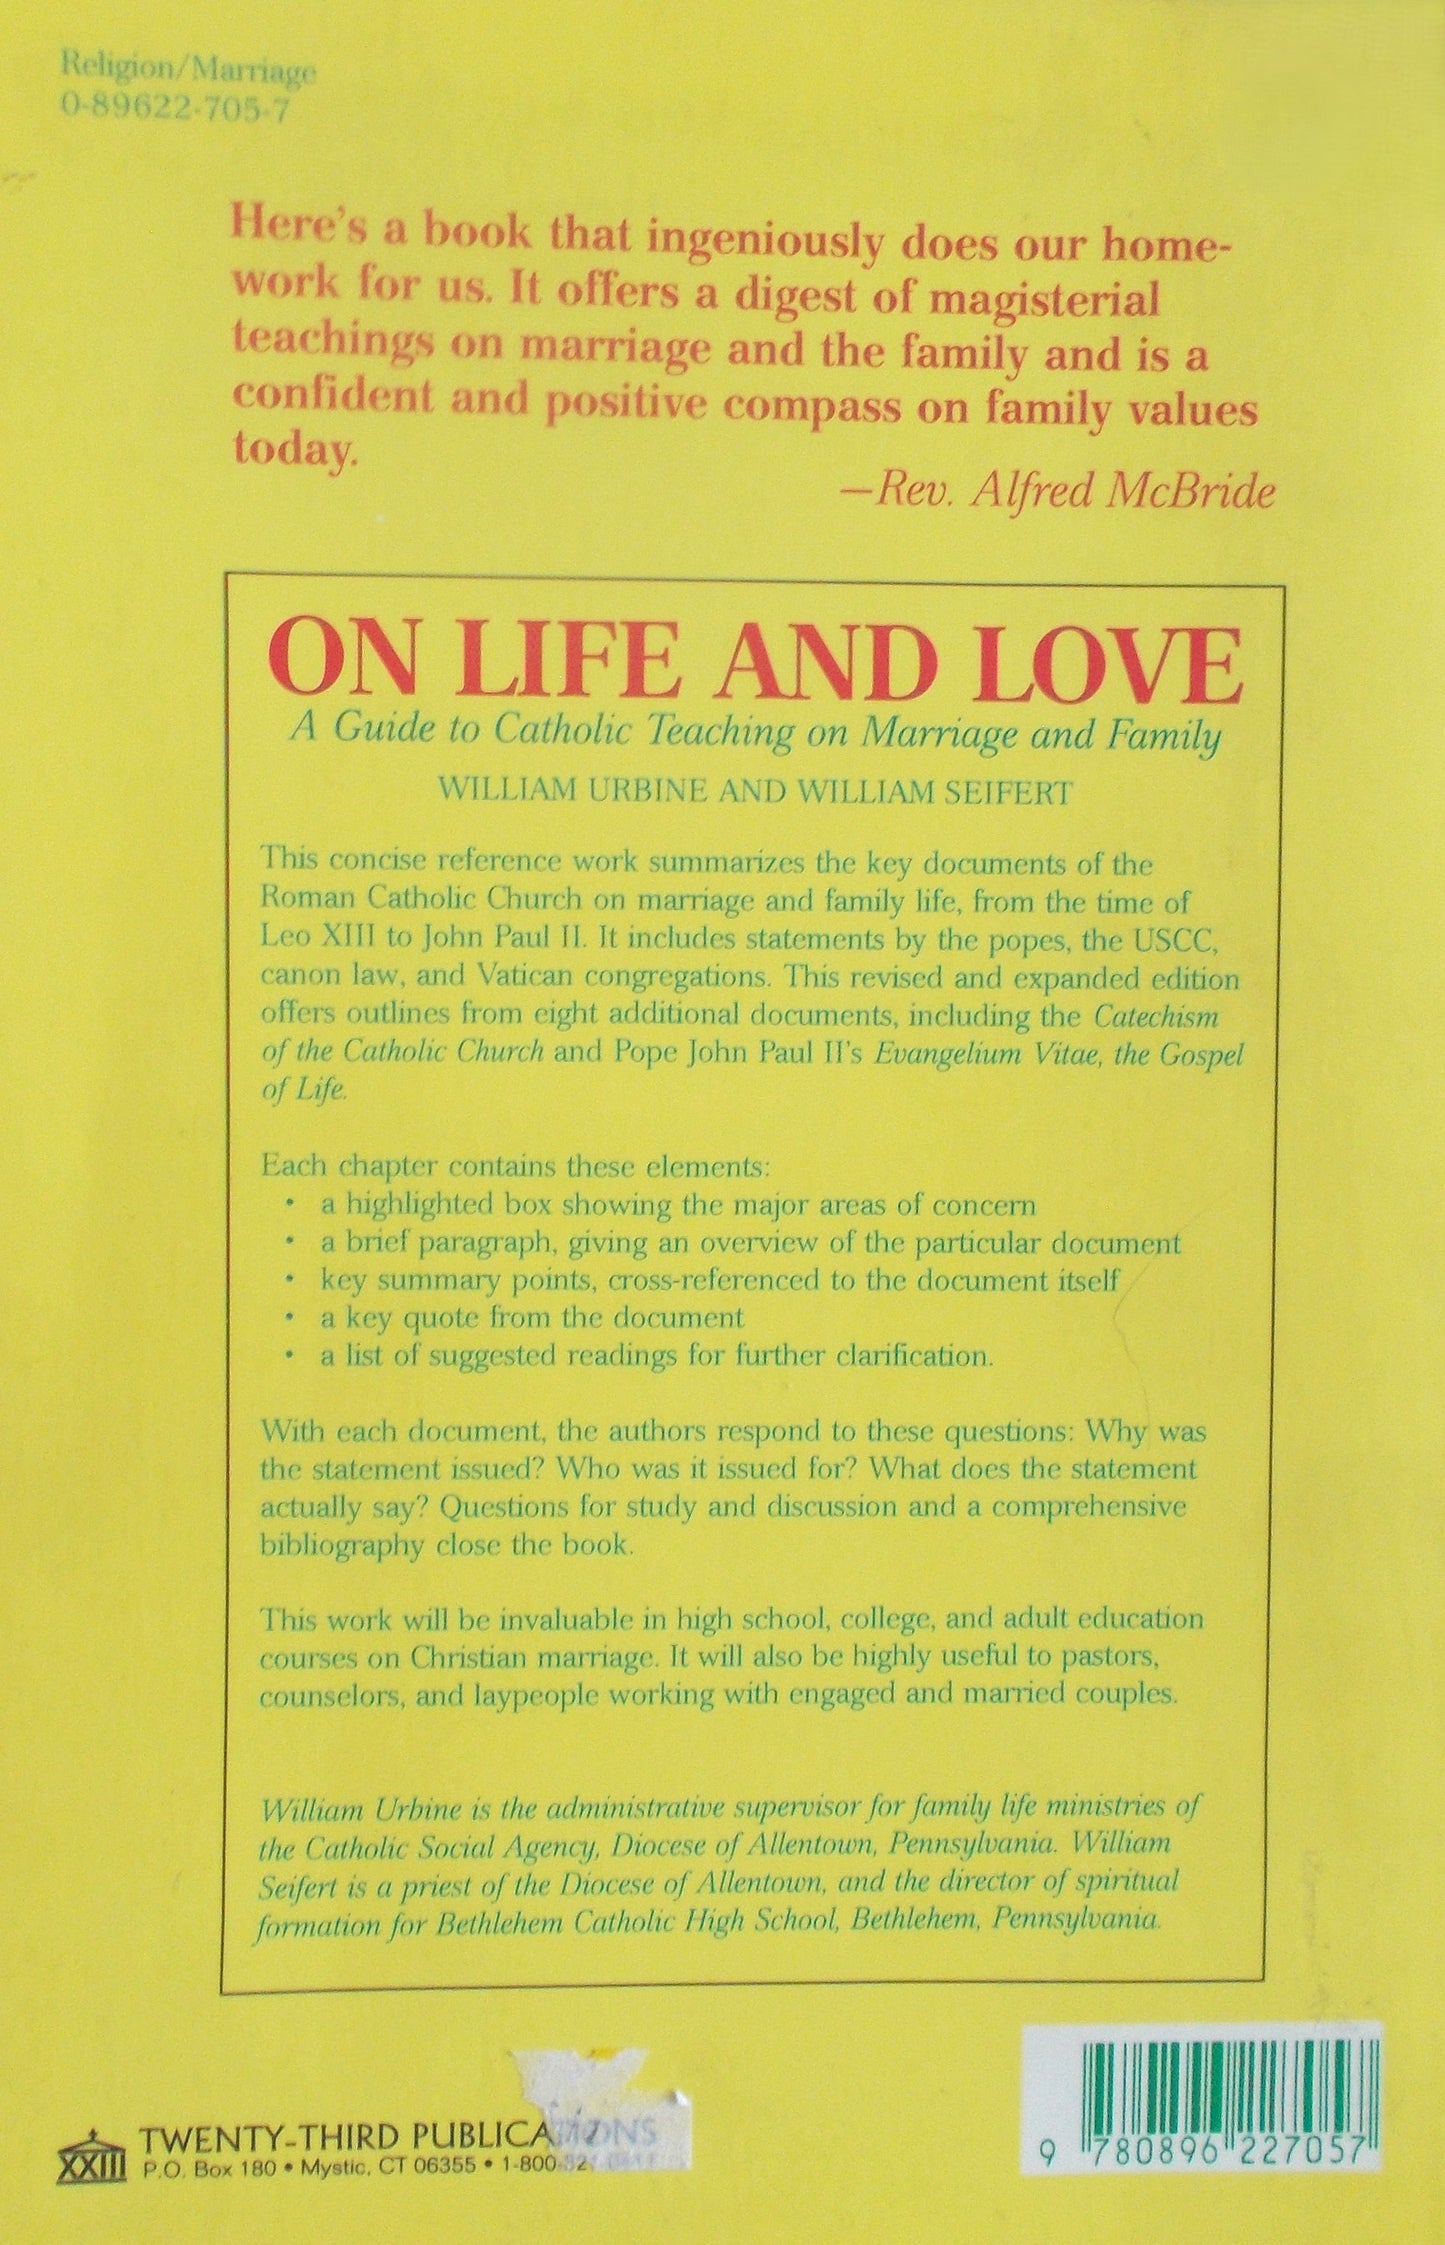 Religion/Marriage
0-89622-705-7
Here's a book that ingeniously does our home-
work for us. It offers a digest of magisterial
teachings on marriage and the family and is a
confident and positive compass on family values
today.
—Rev. Alfred McBride
ON LIFE AND LOVE
A Guide to Catholic Teaching on Marriage and Family
WILLIAM URBINE AND WILLIAM SEIFERT
This concise reference work summarizes the key documents of the
Roman Catholic Church on marriage and family life, from the time of
Leo XIII to John Paul II. It includes statements by the popes, the USCC,
canon law, and Vatican congregations. This revised and expanded edition
offers outlines from eight additional documents, including the Catechism
of the Catholic Church and Pope John Paul II's Evangelium Vitae, the Gospel
of Life.
Each chapter contains these elements:
• a highlighted box showing the major areas of concern
• a brief paragraph, giving an overview of the particular document
• key summary points, cross-referenced to the document itself
• a key quote from the document
• a list of suggested readings for further clarification.
With each document, the authors respond to these questions: Why was
the statement issued? Who was it issued for? What does the statement
actually say? Questions for study and discussion and a comprehensive
bibliography close the book.
This work will be invaluable in high school, college, and adult education
courses on Christian marriage. It will also be highly useful to pastors,
counselors, and laypeople working with engaged and married couples.
William Urbine is the administrative supervisor for family life ministries of
the Catholic Social Agency, Diocese of Allentown, Pennsylvania. William
Seifert is a priest of the Diocese of Allentown, and the director of spiritual
formation for Bethlehem Catholic High School, Bethlehem, Pennsylvania.
XXIII
TWENTY-THIRD PUBLICATIONS
P.O. Box 180 • Mystic, CT 06355 • 1-800-
9 780896 227057